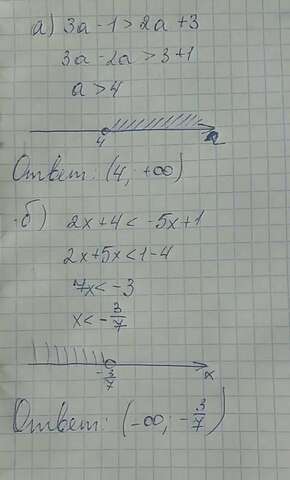 а) 3a - 1 > 2a + 3
3a - 2a > 3 + 1
a > 4
4 a
Ответ: (4; +∞)
б) 2x + 4 < -5x + 1
2x + 5x < 1 - 4
7x < -3
x < -3/7
-3/7 x
Ответ: (-∞; -3/7)